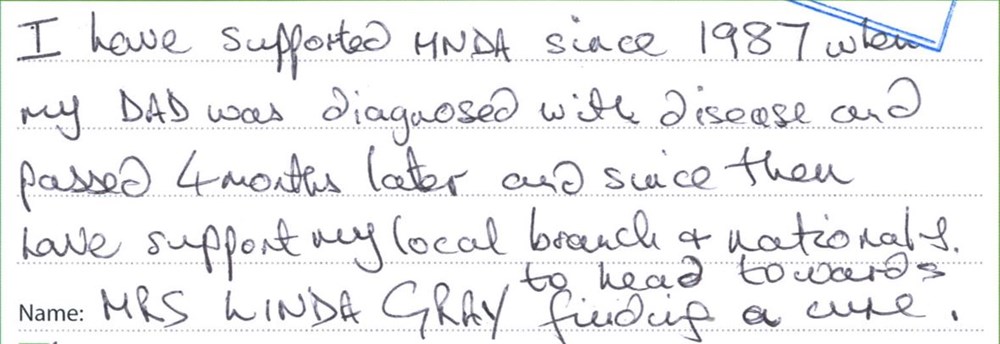 I have supported MNDA since 1987 when
my DAD was diagnosed with disease and
passed 4 months later and since then
have support my local branch & nationals.
to head towards
Name: MRS LINDA GRAY finding a cure.